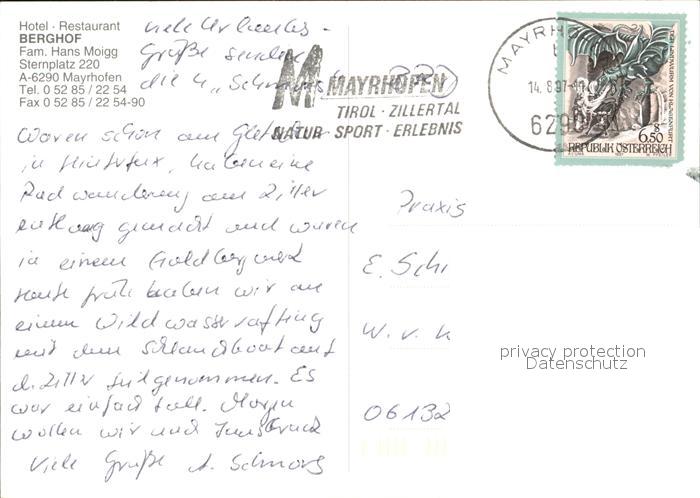 Hotel · Restaurant
BERGHOF
Fam. Hans Moigg
Sternplatz 220
A-6290 Mayrhofen
Tel. 0 52 85 / 22 54
Fax 0 52 85 / 22 54-90
viele Urlaubs-
Grüße senden
die 4 „Schmons“
MAYRHOFEN
TIROL · ZILLERTAL
NATUR · SPORT · ERLEBNIS
MAYRH
14.8.97
6290
6.50
REPUBLIK ÖSTERREICH
Waren schon am Gletscher
in Hintertux, haben eine
Radwanderung am Ziller
entlang gemacht und waren
in einem Goldbergwerk
Heute früh haben wir an
einem Wildwasserrafting
mit dem Schlauchboot auf
d. Ziller teilgenommen. Es
war einfach toll. Morgen
wollen wir nach Innsbruck
Viele Grüße A. Schmons
Praxis
E. Schi
W. v. K
06132
privacy protection
Datenschutz